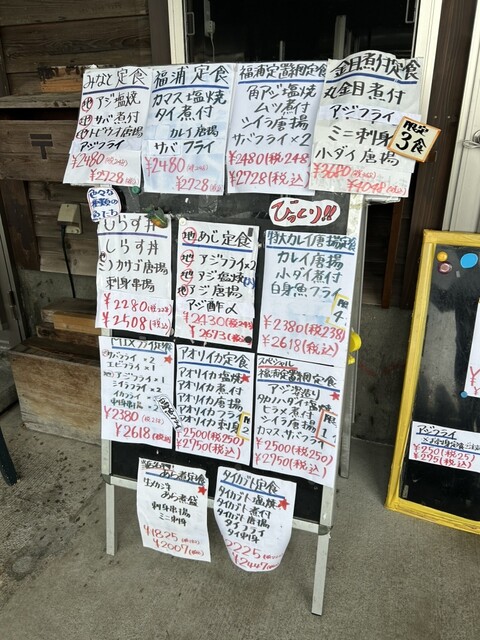 みなと定食
地アジ塩焼
地サバ煮付
アジフライ
¥2480
¥2728
福浦定食
カマス塩焼
タイ煮付
カレイ唐揚
サバフライ
¥2480
¥2728
福浦定置網定食
角アジ塩焼
ムツ煮付
シイラ唐揚
サバフライ×2
¥2480(税248
¥2728(税込)
金目煮付定食
丸金目煮付
アジフライ
ミニ刺身
小ダイ唐揚
¥3680
¥4048
限定
3食
びっくり!!
しらす丼
しらす丼
ミノカサゴ唐揚
刺身串揚
¥2280
¥2508(税込)
地あじ定食
地アジフライ×2
地アジ塩焼
地アジ唐揚
アジ酢〆
¥2430
¥2673(税込)
特大カレイ唐揚定食
カレイ唐揚
小ダイ煮付
白身魚フライ
限
4
¥2380(税238)
¥2618(税込)
MIXフライ定食
サバフライ×2
エビフライ×1
アジフライ×1
シイラフライ×2
イカフライ
刺身串揚
¥2380
¥2618(税込)
アオリイカ定食
アオリイカ塩焼
アオリイカ煮付
アオリイカ唐揚
アオリイカフライ
アオリイカ刺身
限
2
¥2500(税250)
¥2750(税込)
スペシャル
福浦定置網定食
アジ姿造り
タカノハダイ塩焼
ヒラメ煮付
シイラ唐揚
カマス・サバフライ
限
1
¥2500(税250)
¥2750(税込)
あら煮定食
生メカジキ
あら煮袋
刺身串揚
ミニ刺身
¥1825
¥2007
タイカブト定食
タイカブト塩焼
タイカブト煮付
タイカブト唐揚
タイフライ
タイ刺身
2225
¥2447
アジフライ
¥250(税25)
¥295(税込)